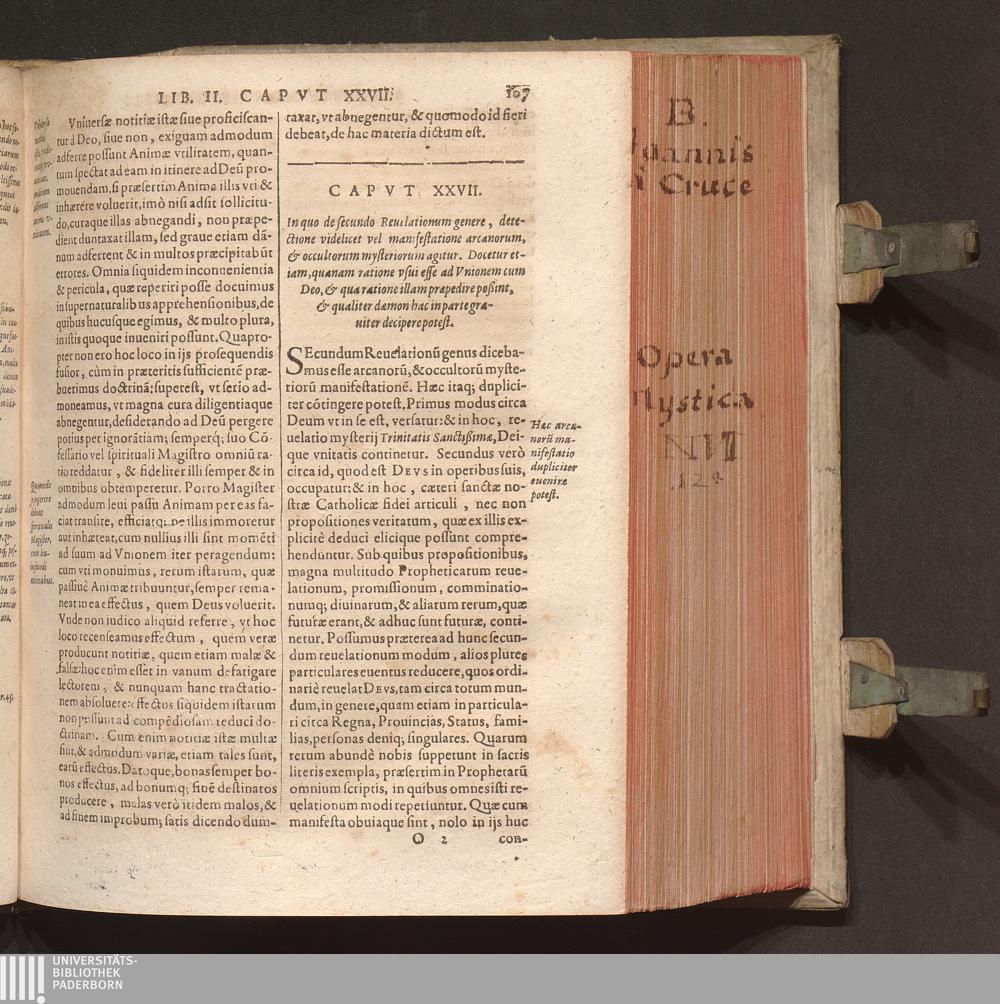 LIB. II. CAPVT XXVII.
107
Vniuersæ notitiæ istæ siue proficiscan-
tur à Deo, siue non, exiguam admodum
adferre possunt Animæ vtilitatem, quan-
tum spectat ad eam in itinere ad Deũ pro-
mouendam, si præsertim Anima illis vti &
inhærere voluerit, imò nisi adsit sollicitu-
do, curaque illas abnegandi, non præpe-
dient duntaxat illam, sed graue etiam dã-
num adferrent & in multos præcipitabũt
errores. Omnia siquidem inconuenientia
& pericula, quæ reperiri posse docuimus
in supernaturalibus apprehensionibus, de
quibus hucusque egimus, & multo plura,
in istis quoque inueniri possunt. Quapro-
pter non ero hoc loco in ijs prosequendis
fusior, cùm in præteritis sufficientẽ præ-
buerimus doctrinã: superest, vt serio ad-
moneamus, vt magna cura diligentiaque
abnegentur, desiderando ad Deũ pergere
potius per ignorãtiam; semperq; suo Cõ-
fessario vel spirituali Magistro omniũ ra-
tio reddatur, & fideliter illi semper & in
omnibus obtemperetur. Porro Magister
admodum leui passu Animam per eas fa-
ciat transire, efficiatq; ne illis immoretur
aut inhæreat, cum nullius illi sint momẽti
ad suum ad Vnionem iter peragendum:
cum vti monuimus, rerum istarum, quæ
passiuè Animæ tribuuntur, semper rema-
neat in ea effectus, quem Deus voluerit.
Vnde non iudico aliquid referre, vt hoc
loco recenseamus effectum, quem veræ
producunt notitiæ, quem etiam malæ &
falsæ: hoc enim esset in vanum defatigare
lectorem, & nunquam hanc tractatio-
nem absoluere: effectus siquidem istarum
non possunt ad compẽdiosam reduci do-
ctrinam. Cum enim notitiæ istæ multæ
sint, & admodum variæ, etiam tales sunt,
earũ effectus. Datoque, bonas semper bo-
nos effectus, ad bonumq; finẽ destinatos
producere, malas verò itidem malos, &
ad finem improbum; satis dicendo dum-
Quomodo
Magister,
taxat, vt abnegentur, & quomodo id fieri
debeat, de hac materia dictum est.
CAPVT XXVII.
In quo de secundo Reuelationum genere, dete-
ctione videlicet vel manifestatione arcanorum,
& occultorum mysteriorum agitur. Docetur et-
iam, quanam ratione vsui esse ad Vnionem cum
Deo, & qua ratione illam præpedire poßint,
& qualiter dæmon hac in parte gra-
uiter decipere potest.
SEcundum Reuelationũ genus diceba-
mus esse arcanorũ, & occultorũ myste-
riorũ manifestationẽ. Hæc itaq; duplici-
ter cõtingere potest, Primus modus circa
Deum vt in se est, versatur: & in hoc, re-
uelatio mysterij Trinitatis Sanctißimæ, Dei-
que vnitatis continetur. Secundus verò
circa id, quod est DEVS in operibus suis,
occupatur: & in hoc, cæteri sanctæ no-
stræ Catholicæ fidei articuli, nec non
propositiones veritatum, quæ ex illis ex-
plicitè deduci elicique possunt compre-
henduntur. Sub quibus propositionibus,
magna multitudo Propheticarum reue-
lationum, promissionum, comminatio-
numq; diuinarum, & aliarum rerum, quæ
futuræ erant, & adhuc sunt futuræ, conti-
netur. Possumus præterea ad hunc secun-
dum reuelationum modum, alios plures
particulares euentus reducere, quos ordi-
nariè reuelat DEVS, tam circa totum mun-
dum, in genere, quam etiam in particula-
ri circa Regna, Prouincias, Status, fami-
lias, personas deniq; singulares. Quarum
rerum abundè nobis suppetunt in sacris
literis exempla, præsertim in Prophetarũ
omnium scriptis, in quibus omnes isti re-
uelationum modi reperiuntur. Quæ cum
manifesta obuiaque sint, nolo in ijs huc
Hæc arca-
norũ ma-
nifestatio
dupliciter
euenire
potest.
O 2
con-
B.
Joannis
à Cruce
Opera
Mystica
UNIVERSITÄTS-
BIBLIOTHEK
PADERBORN